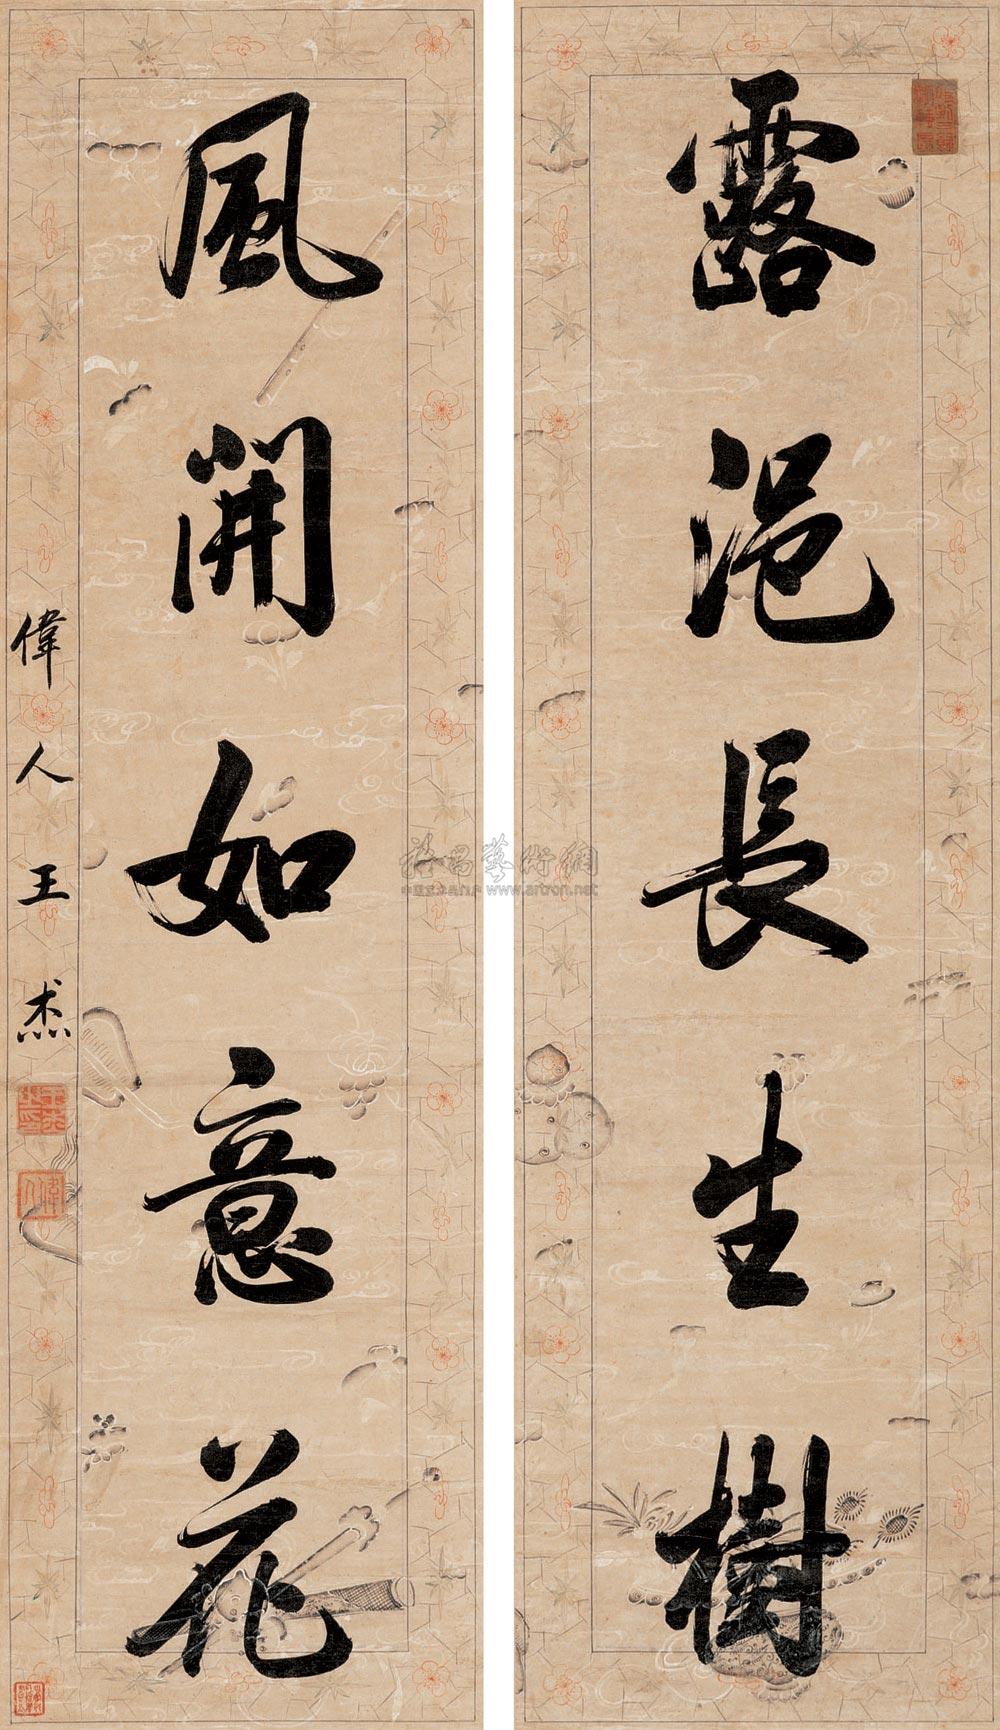 露浥長生樹
風開如意花
偉人王杰
偉人
www.artron.net